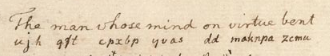 The man whose mind on virtue bent
ujh qft cpxbp yvas dd maknpa zcmu